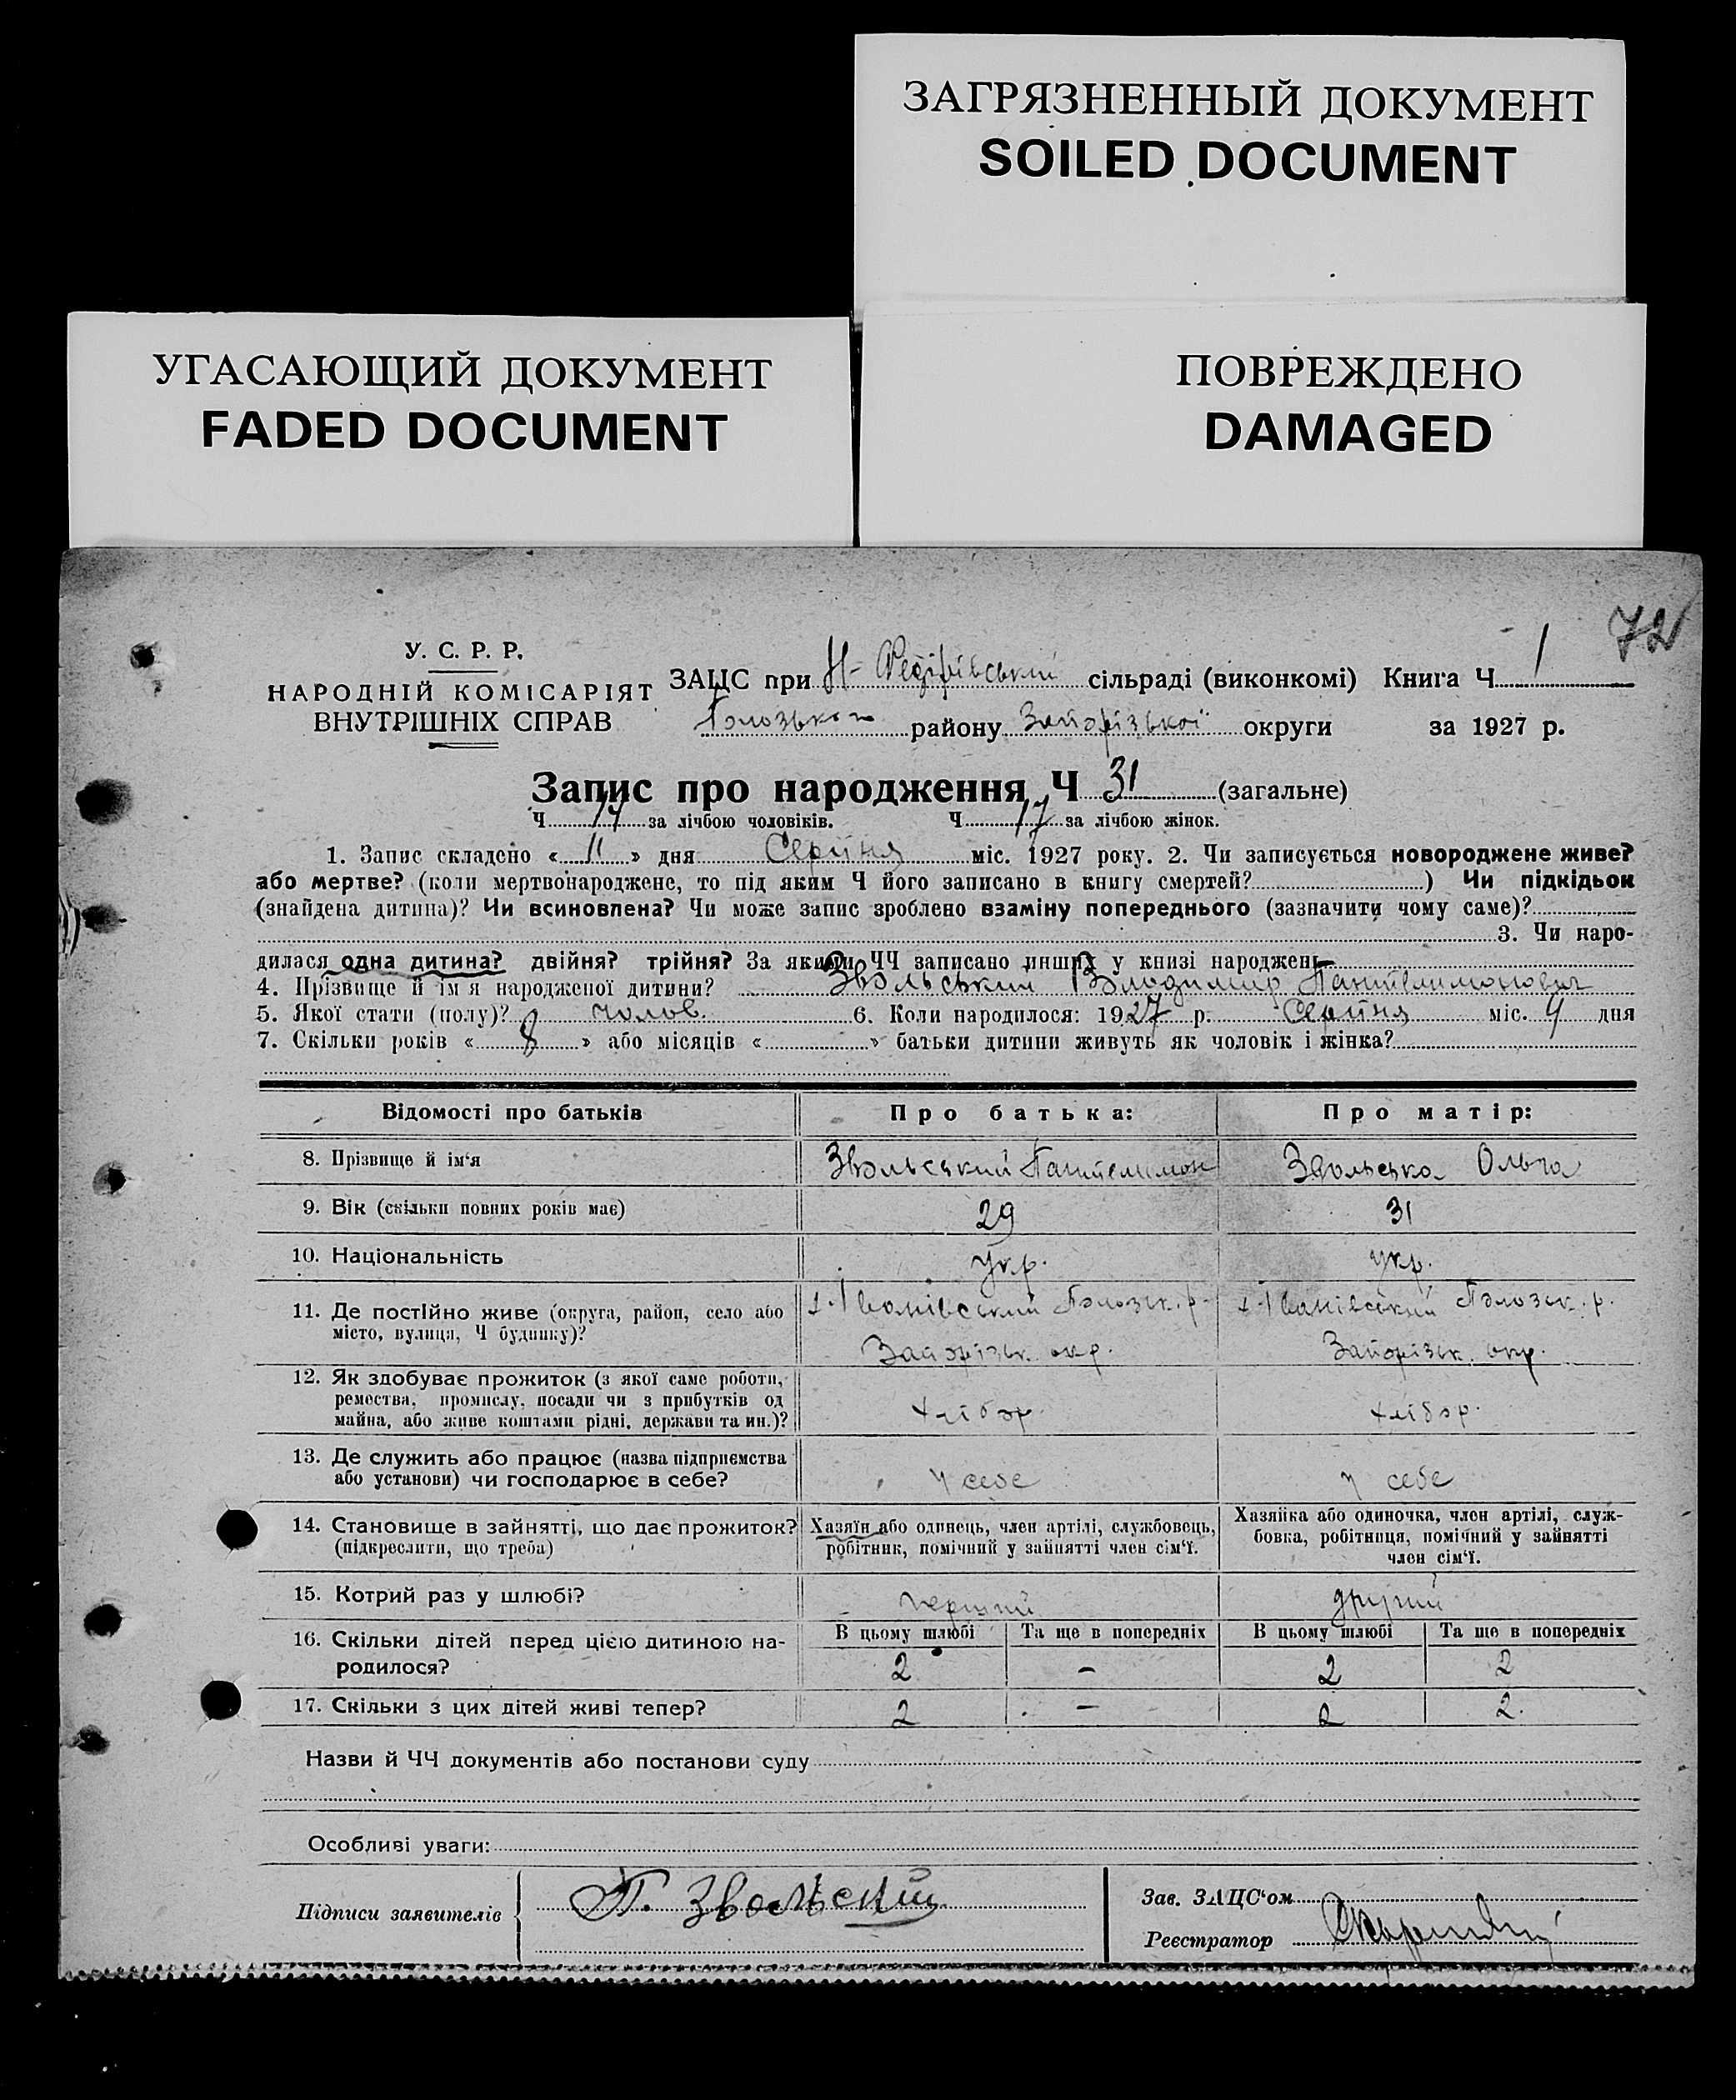 ЗАГРЯЗНЕННЫЙ ДОКУМЕНТ
SOILED DOCUMENT
УГАСАЮЩИЙ ДОКУМЕНТ
FADED DOCUMENT
ПОВРЕЖДЕНО
DAMAGED
72
У. С. Р. Р.
НАРОДНІЙ КОМІСАРІЯТ
ВНУТРІШНІХ СПРАВ
ЗАЦС при Н-Федірівській сільраді (виконкомі) Книга Ч 1
Полозького району Запорізької округи за 1927 р.
Запис про народження Ч 31 (загальне)
Ч 14 за лічбою чоловіків. Ч 17 за лічбою жінок.
1. Запис складено « 11 » дня Серпня міс. 1927 року. 2. Чи записується новороджене живе?
або мертве? (коли мертвонароджене, то під яким Ч його записано в книгу смертей? ) Чи підкідьок
(знайдена дитина)? Чи всиновлена? Чи може запис зроблено взаміну попереднього (зазначити чому саме)?
3. Чи наро-
дилася одна дитина? двійня? трійня? За якими ЧЧ записано инших у книзі народжень
4. Прізвище й ім'я народженої дитини? Звольський Володимир Пантелимонович
5. Якої стати (полу)? чолов. 6. Коли народилося: 1927 р. Серпня міс. 4 дня
7. Скільки років « 8 » або місяців « » батьки дитини живуть як чоловік і жінка?
Відомості про батьків Про батька: Про матір:
8. Прізвище й ім'я Звольський Пантелимон Звольська Ольга
9. Вік (скільки повних років має) 29 31
10. Національність Укр. укр.
11. Де постійно живе (округа, район, село або х. Іванівський Полозьк. р. х. Іванівський Полозьк. р.
місто, вулиця, Ч будинку)? Запорізьк. окр. Запорізьк. окр.
12. Як здобуває прожиток (з якої саме роботи,
ремества, промислу, посади чи з прибутків од хлібор. хлібор.
майна, або живе коштами рідні, держави та ин.)?
13. Де служить або працює (назва підприємства
або установи) чи господарює в себе? у себе у себе
14. Становище в зайнятті, що дає прожиток? Хазяїн або одинець, член артілі, службовець, Хазяйка або одиночка, член артілі, служ-
(підкреслити, що треба) робітник, помічний у зайнятті член сім'ї. бовка, робітниця, помічний у зайнятті
член сім'ї.
15. Котрий раз у шлюбі? перший другий
16. Скільки дітей перед цією дитиною на- В цьому шлюбі Та ще в попередніх В цьому шлюбі Та ще в попередніх
родилося? 2 - 2 2
17. Скільки з цих дітей живі тепер? 2 - 2 2.
Назви й ЧЧ документів або постанови суду
Особливі уваги:
Підписи заявителів П. Звольский
Зав. ЗАЦС'ом
Реєстратор